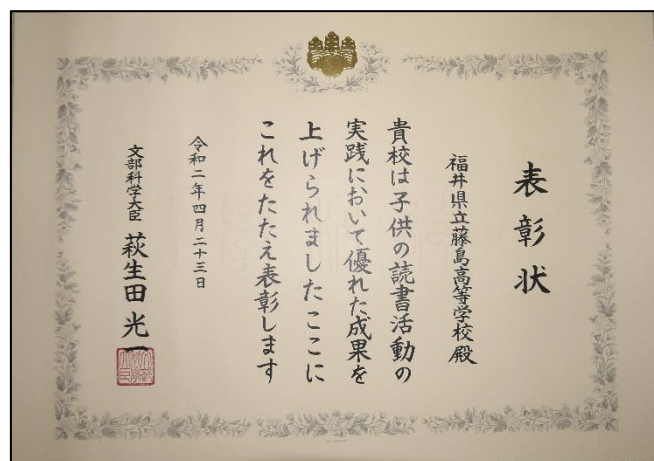 表彰状
福井県立藤島高等学校殿
貴校は子供の読書活動の
実践において優れた成果を
上げられましたここに
これをたたえ表彰します
令和二年四月二十三日
文部科学大臣 萩生田光一